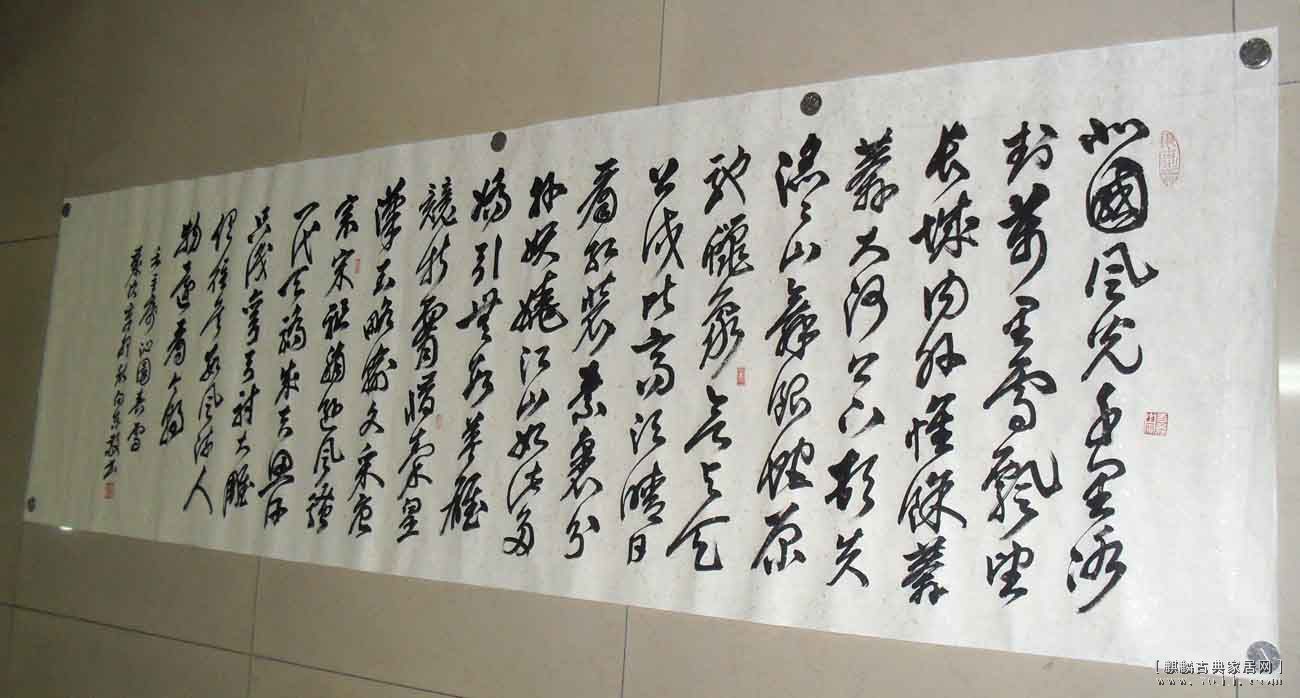 北國风光千里冰
封萬里雪飄望
长城内外惟餘莽
莽大河上下頓失
滔々山舞銀蛇原
馳蠟象欲与天
公试比高须晴日
看红装素裹分
外妖娆江山如此多
嬌引無数英雄
競折腰惜秦皇
漢武略输文采唐
宗宋祖稍逊风骚
一代天骄成吉思汗
只识弯弓射大雕
俱往矣数风流人
物还看今朝
毛主席沁園春雪
歲次辛卯秋向东敬书
[麒麟古典家居网]